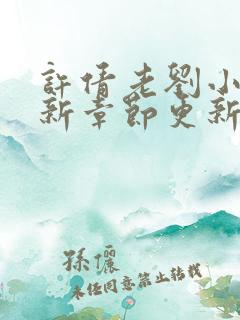 許倩老劉小
新章節更新
孫儷
未经同意禁止转载